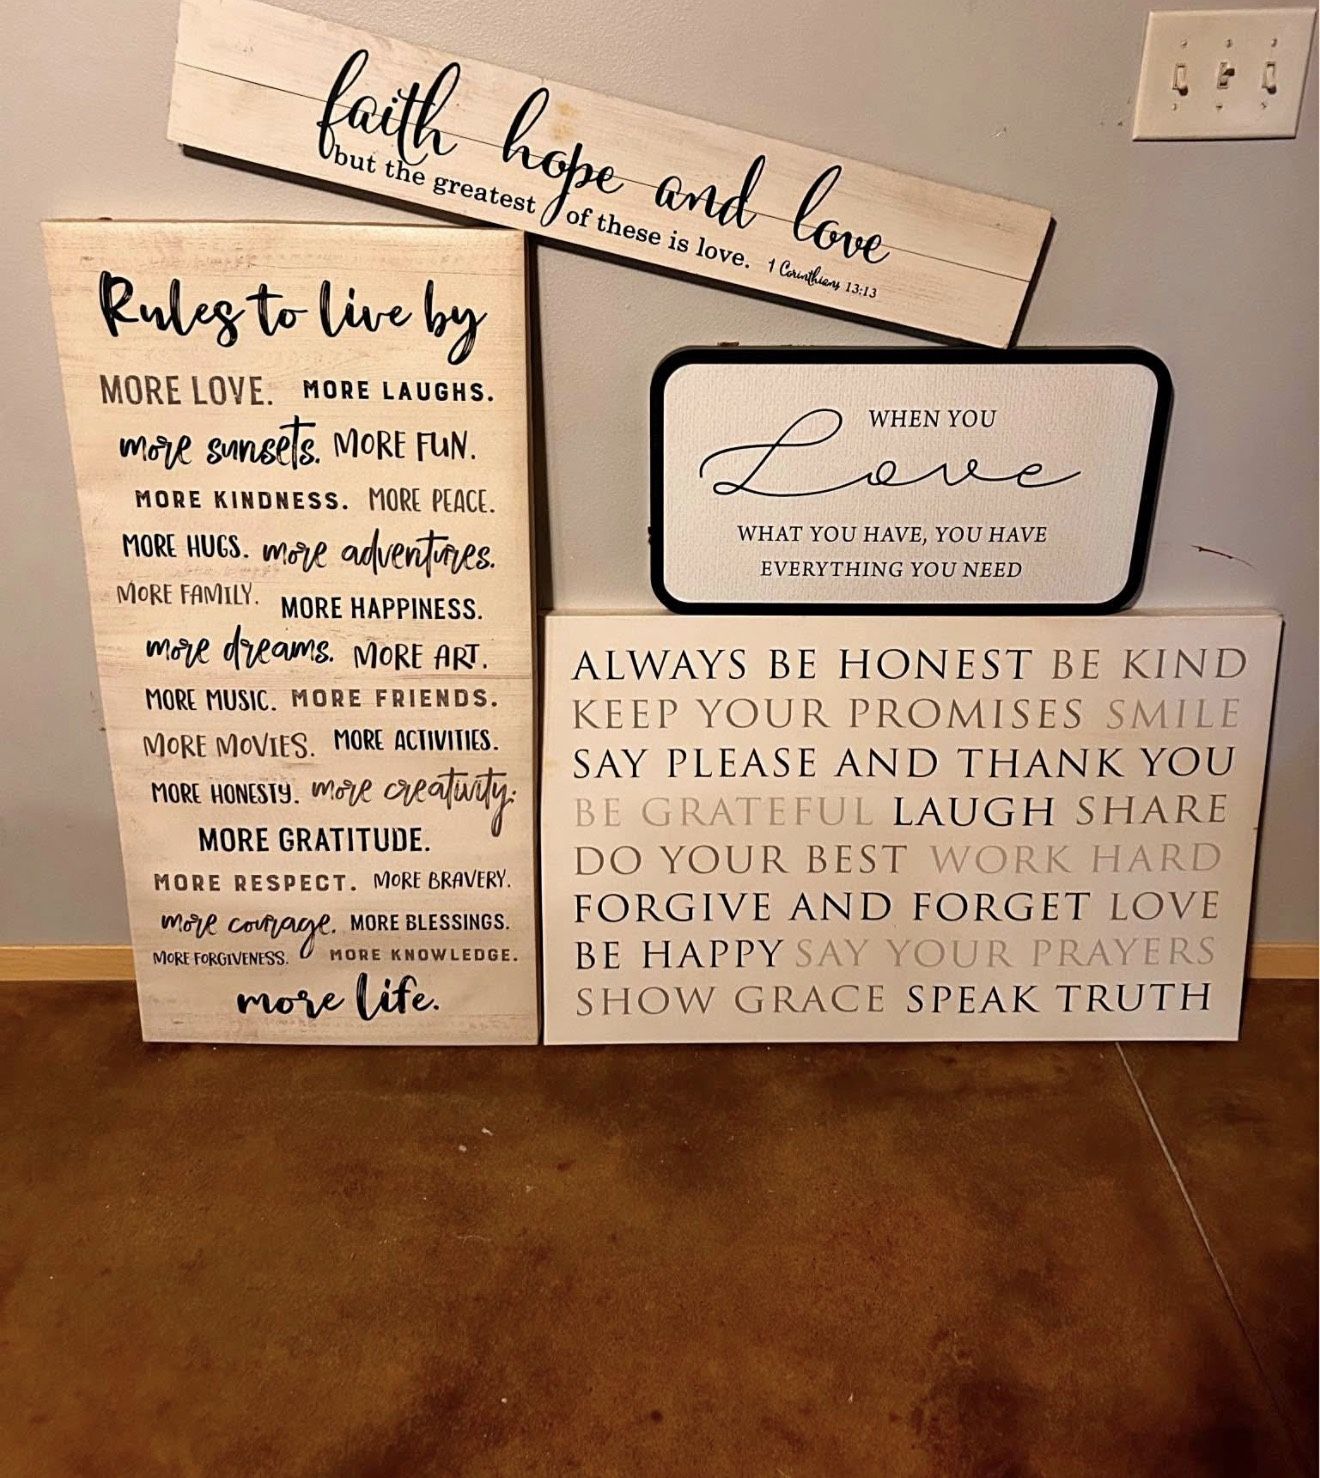 faith hope and love
but the greatest of these is love.
1 Corinthians 13:13
Rules to live by
MORE LOVE. MORE LAUGHS.
more sunsets. MORE FUN.
MORE KINDNESS. MORE PEACE.
MORE HUGS. more adventures.
MORE FAMILY. MORE HAPPINESS.
more dreams. MORE ART.
MORE MUSIC. MORE FRIENDS.
MORE MOVIES. MORE ACTIVITIES.
MORE HONESTY. more creativity.
MORE GRATITUDE.
MORE RESPECT. MORE BRAVERY.
more courage. MORE BLESSINGS.
MORE FORGIVENESS. MORE KNOWLEDGE.
more life.
WHEN YOU
Love
WHAT YOU HAVE, YOU HAVE
EVERYTHING YOU NEED
ALWAYS BE HONEST BE KIND
KEEP YOUR PROMISES SMILE
SAY PLEASE AND THANK YOU
BE GRATEFUL LAUGH SHARE
DO YOUR BEST WORK HARD
FORGIVE AND FORGET LOVE
BE HAPPY SAY YOUR PRAYERS
SHOW GRACE SPEAK TRUTH